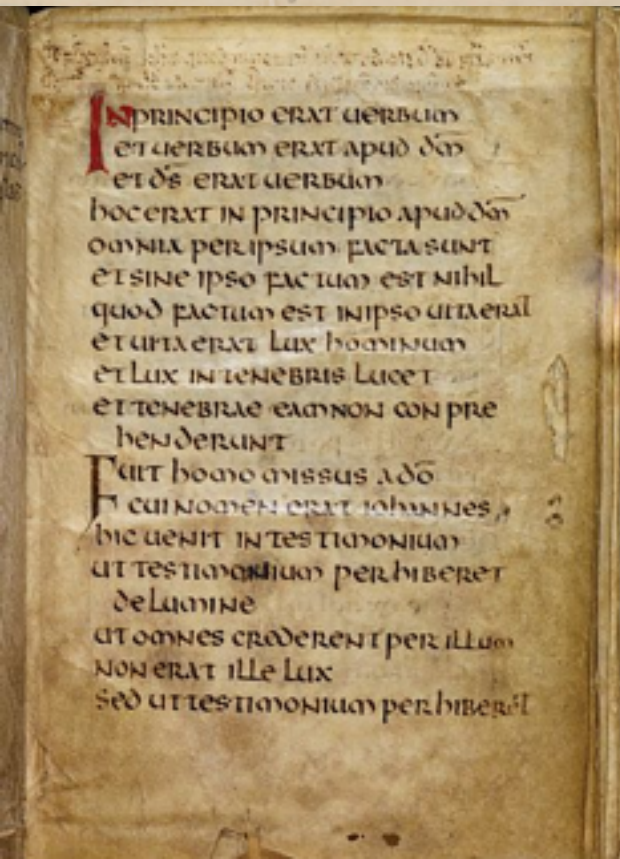 IN PRINCIPIO ERAT UERBUM
ET UERBUM ERAT APUD D̄M
ET D̄S ERAT UERBUM
hoc ERAT IN PRINCIPIO APUD D̄M
OMNIA PER IPSUM FACTA SUNT
ET SINE IPSO FACTUM EST NIHIL
QUOD FACTUM EST IN IPSO UITA ERAT
ET UITA ERAT LUX HOMINUM
ET LUX IN TENEBRIS LUCET
ET TENEBRAE EAM NON CONPRE
HENDERUNT
FUIT HOMO MISSUS A DŌ
CUI NOMEN ERAT IOHANNES
HIC UENIT IN TESTIMONIUM
UT TESTIMONIUM PERHIBERET
DE LUMINE
UT OMNES CREDERENT PER ILLUM
NON ERAT ILLE LUX
SED UT TESTIMONIUM PERHIBERET